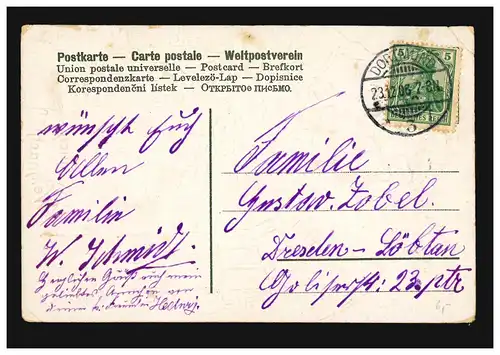 Postkarte — Carte postale — Weltpostverein
Union postale universelle — Postcard — Brefkort
Correspondenzkarte — Levelező-Lap — Dopisnice
Korespondenční lístek — Открытое письмо.
5
DORTMUND
wünscht Euch
Allen
Familie
W. Schmidt.
Herzlichen Gruß auch mein
geliebtes Annchen von
Familie
Gustav Zobel.
Dresden-Löbtau
23 ptr